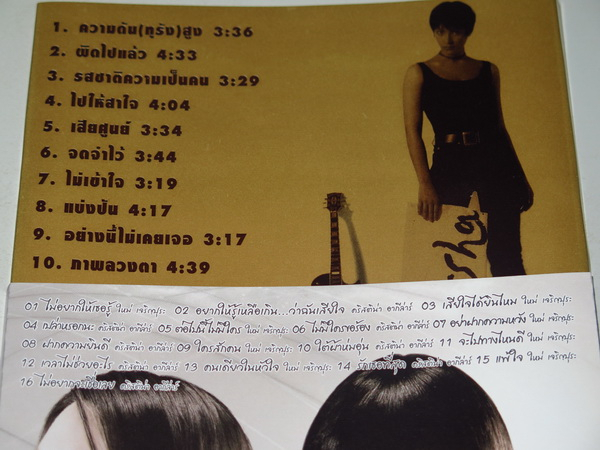 1. ความดัน(ทุรัง)สูง 3:36
2. ผิดไปแล้ว 4:33
3. รสชาติความเป็นคน 3:29
4. ไปให้สาใจ 4:04
5. เสียศูนย์ 3:34
6. จดจำไว้ 3:44
7. ไม่เข้าใจ 3:19
8. แบ่งปัน 4:17
9. อย่างนี้ไม่เคยเจอ 3:17
10. ภาพลวงตา 4:39
sha
01 ไม่อยากให้เธอรู้ ใหม่ เจริญปุระ 02 อยากให้รู้เหลือเกิน...ว่าฉันเสียใจ คริสติน่า อากีล่าร์ 03 เสียใจได้ยินไหม ใหม่ เจริญปุระ
04 เปล่าหรอกนะ คริสติน่า อากีล่าร์ 05 ต่อไปนี้ไม่มีใคร ใหม่ เจริญปุระ 06 ไม่มีใคร คริสติน่า อากีล่าร์ 07 อย่าฝากความหวัง ใหม่ เจริญปุระ
08 ฝากความยินดี คริสติน่า อากีล่าร์ 09 ใครสักคน ใหม่ เจริญปุระ 10 ใต้ผ้าห่มอุ่น คริสติน่า อากีล่าร์ 11 จะไปทางไหนดี ใหม่ เจริญปุระ
12 เวลาไม่ช่วยอะไร คริสติน่า อากีล่าร์ 13 คนเดียวในหัวใจ ใหม่ เจริญปุระ 14 รักเธอที่สุด คริสติน่า อากีล่าร์ 15 แพ้ใจ ใหม่ เจริญปุระ
16 ไม่อยาก คริสติน่า อากีล่าร์